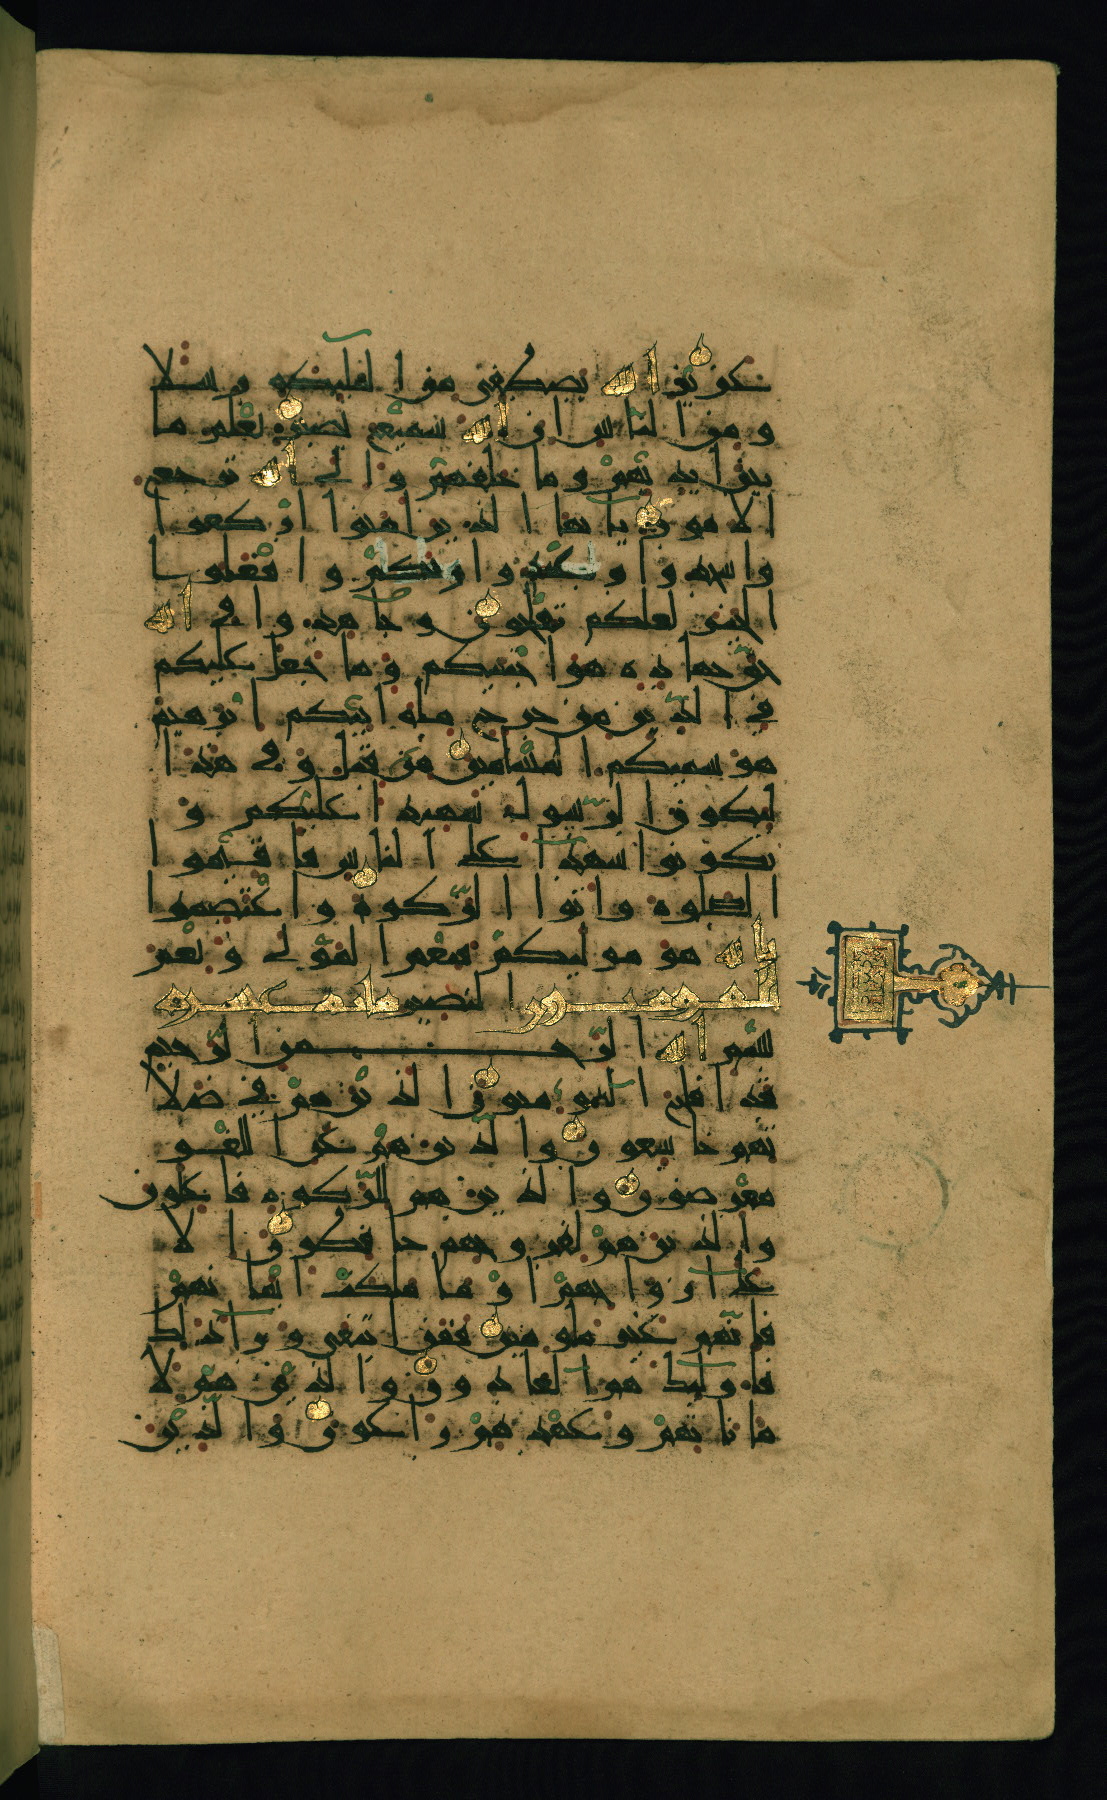 عزيز الله يصطفى من الملئكة رسلا
ومن الناس ان الله سميع بصير يعلم ما
بين ايديهم وما خلفهم والى الله ترجع
الامور يايها الذين امنوا اركعوا
واسجدوا واعبدوا ربكم وافعلوا
الخير لعلكم تفلحون وجاهدوا في الله
حق جهاده هو اجتبيكم وما جعل عليكم
في الدين من حرج ملة ابيكم ابرهيم
هو سميكم المسلمين من قبل وفي هذا
ليكون الرسول شهيدا عليكم و
تكونوا شهدآ على الناس فاقيموا
الصلوة واتوا الزكوة واعتصموا
بالله هو موليكم فنعم المولى ونعم
المومنون النصير
بسم الله الرحمن الرحيم
قد افلح المومنون الذين هم في صلا
تهم خاشعون والذين هم عن اللغو
معرضون والذين هم للزكوة فاعلون
والذين هم لفروجهم حافظون الا
على ازواجهم او ما ملكت ايمانهم
فانهم غير ملومين فمن ابتغى ورآ ذلك
فاوليك هم العادون والذين هم لا
ماناتهم وعهدهم راعون والذين